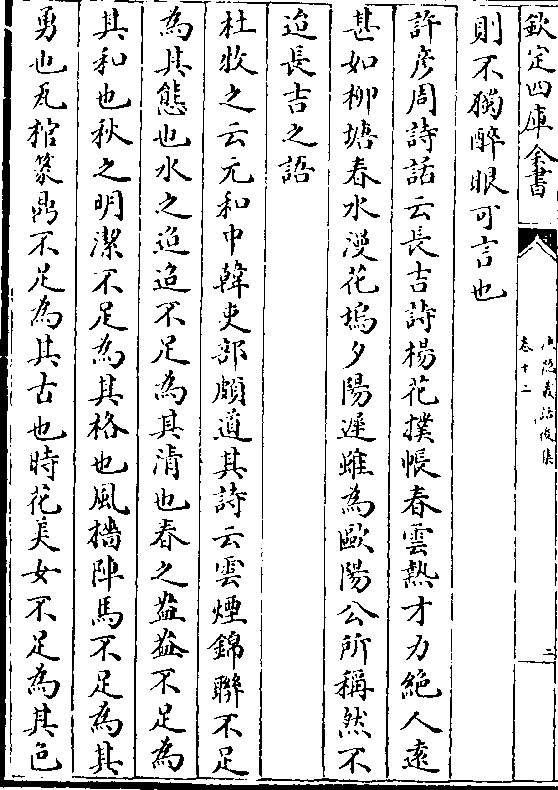 欽定四庫全書
漁隱叢話後集
卷十二
三
則不獨醉眼可言也
許彦周詩話云長吉詩楊花撲帳春雲熱才力絶人逺
甚如柳塘春水漫花塢夕陽遲雖為歐陽公所稱然不
迨長吉之語
杜牧之云元和中韓吏部頗道其詩云雲煙錦聯不足
為其態也水之迢迢不足為其清也春之盎盎不足為
其和也秋之明潔不足為其格也風檣陣馬不足為其
勇也瓦棺篆鼎不足為其古也時花美女不足為其色